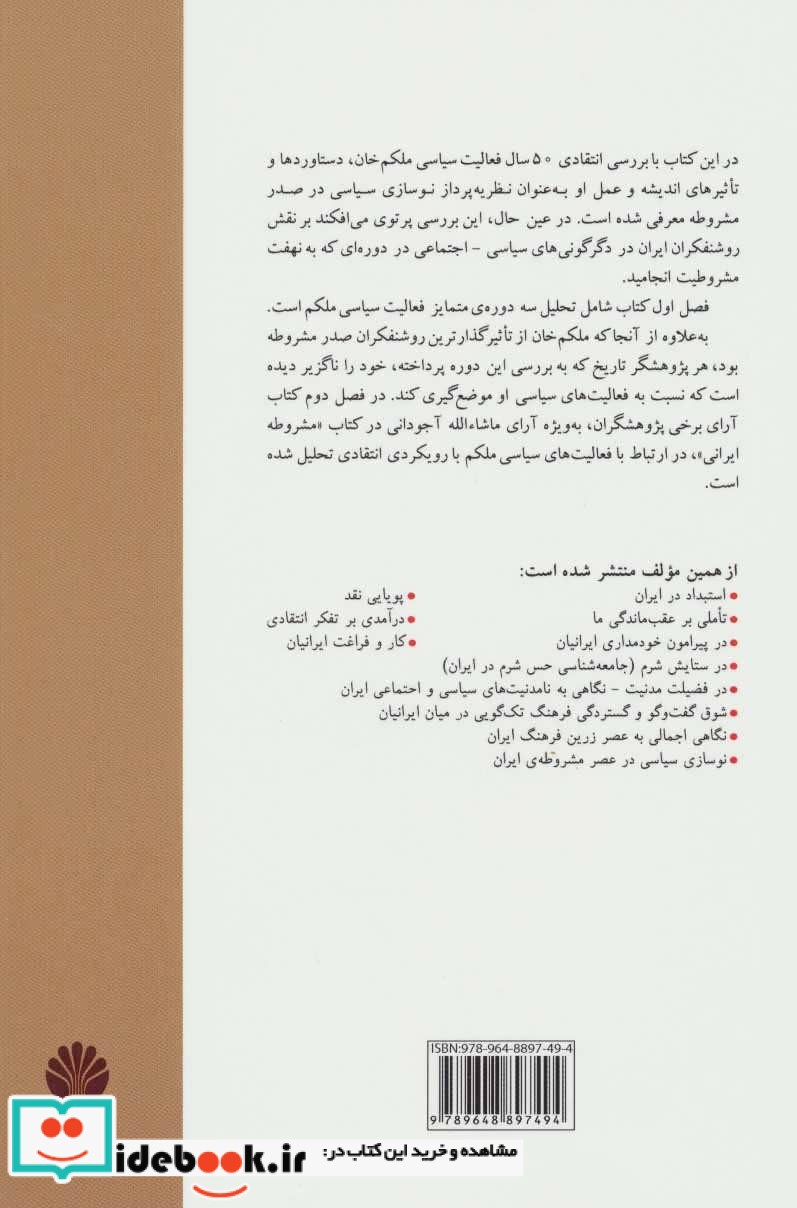 در این کتاب با بررسی انتقادی ۵۰ سال فعالیت سیاسی ملکم‌خان، دستاوردها و
تأثیرهای اندیشه و عمل او به‌عنوان نظریه‌پرداز نوسازی سیاسی در صدر
مشروطه معرفی شده است. در عین حال، این بررسی پرتوی می‌افکند بر نقش
روشنفکران ایران در دگرگونی‌های سیاسی - اجتماعی در دوره‌ای که به نهفت
مشروطیت انجامید.
فصل اول کتاب شامل تحلیل سه دوره‌ی متمایز فعالیت سیاسی ملکم است.
به‌علاوه از آنجا که ملکم‌خان از تأثیرگذارترین روشنفکران صدر مشروطه
بود، هر پژوهشگر تاریخ که به بررسی این دوره پرداخته، خود را ناگزیر دیده
است که نسبت به فعالیت‌های سیاسی او موضع‌گیری کند. در فصل دوم کتاب
آرای برخی پژوهشگران، به‌ویژه آرای ماشاءالله آجودانی در کتاب «مشروطه
ایرانی»، در ارتباط با فعالیت‌های سیاسی ملکم با رویکردی انتقادی تحلیل شده
است.
از همین مؤلف منتشر شده است:
● استبداد در ایران
● تأملی بر عقب‌ماندگی ما
● در پیرامون خودمداری ایرانیان
● در ستایش شرم (جامعه‌شناسی حس شرم در ایران)
● در فضیلت مدنیت - نگاهی به نامدنیت‌های سیاسی و احتماعی ایران
● شوق گفت‌وگو و گستردگی فرهنگ تک‌گویی در میان ایرانیان
● نگاهی اجمالی به عصر زرین فرهنگ ایران
● نوسازی سیاسی در عصر مشروطه‌ی ایران
● پویایی نقد
● درآمدی بر تفکر انتقادی
● کار و فراغت ایرانیان
ISBN:978-964-8897-49-4
9 789648 897494
مشاهده و خرید این کتاب در:
idebook.ir